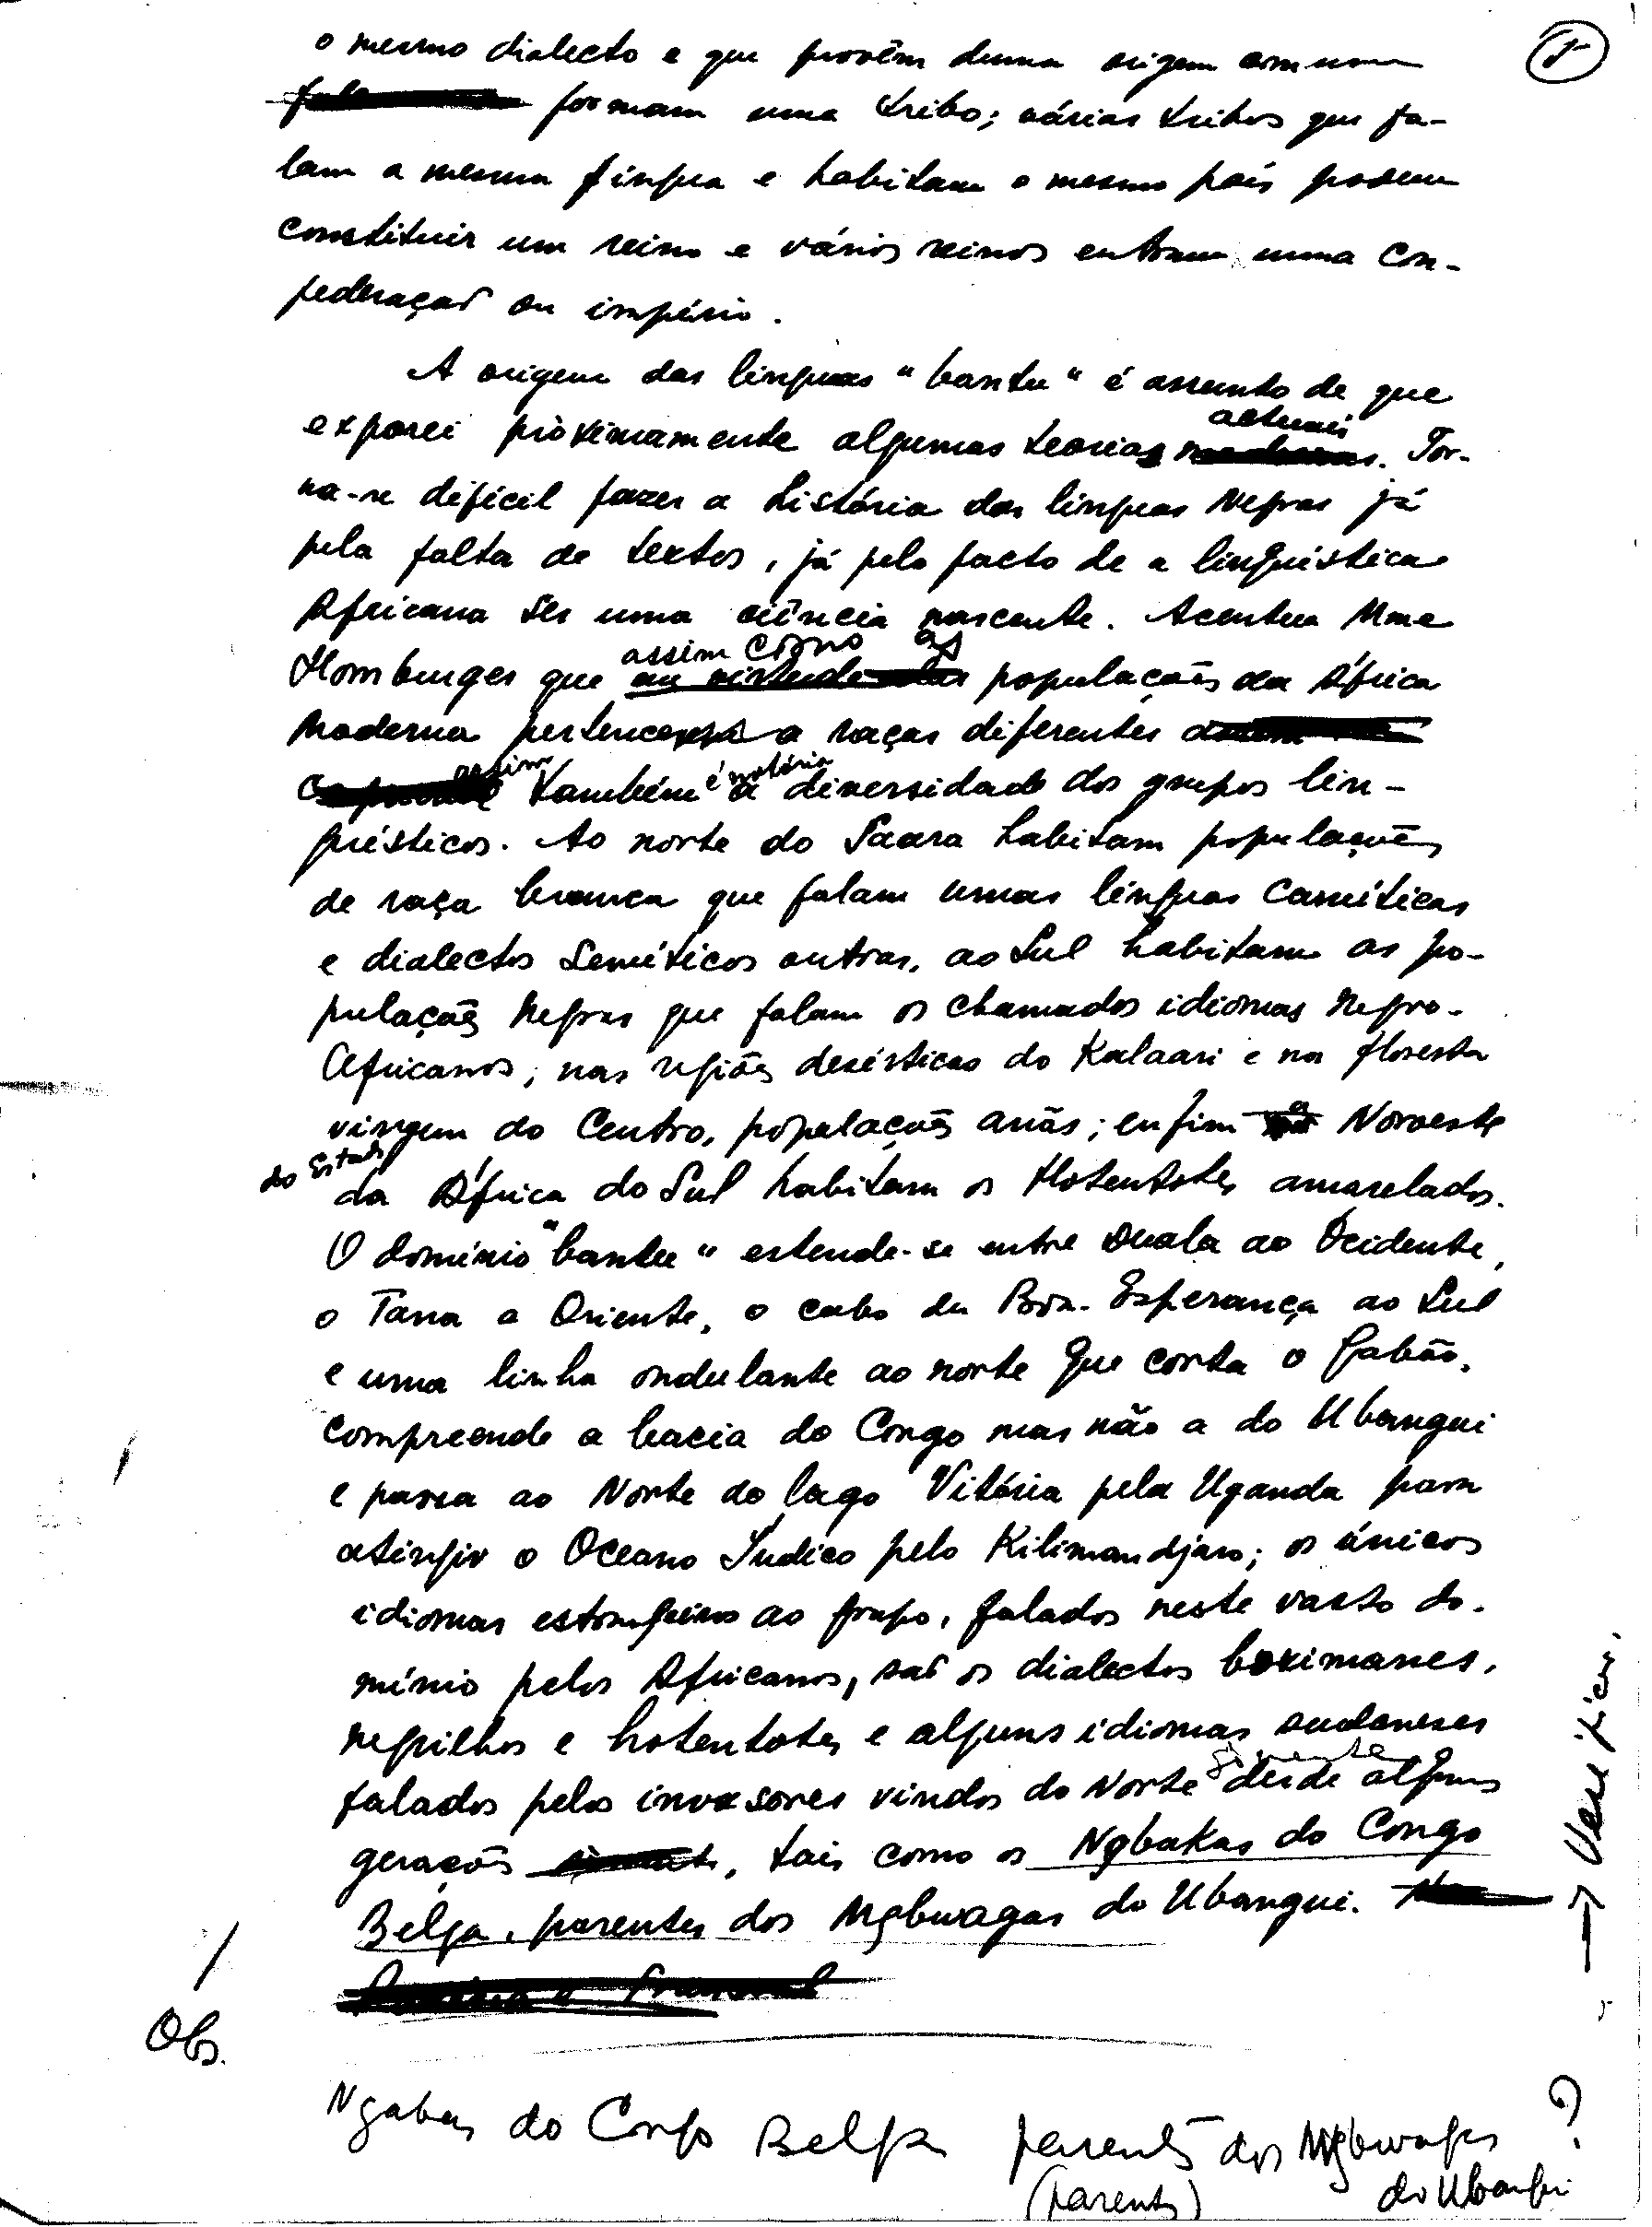 o mesmo dialecto e que provêm duma origem comum
formam uma tribo; várias tribos que fa-
lam a mesma língua e habitam o mesmo país podem
constituir um reino e vários reinos entram numa con-
federação ou império.
A origem das línguas "bantu" é assunto de que
exporei pròximamente algumas teorias actuais. Tor-
na-se difícil fazer a história das línguas Negras já
pela falta de textos, já pelo facto de a linguística
Africana ser uma ciência nascente. Acentua Mme
Homburger que assim como as populações da África
Moderna pertencem a raças diferentes
assim também é notória a diversidade dos grupos lin-
guísticos. Ao norte do Saara habitam populações
de raça branca que falam umas línguas camíticas
e dialectos semíticos outras, ao Sul habitam as po-
pulações Negras que falam os chamados idiomas negro-
Africanos; nas regiões desérticas do Kalaari e na floresta
virgem do Centro, populações anãs; enfim a Noroeste
do Estado
da África do Sul habitam os Hotentotes amarelados.
O domínio "bantu" estende-se entre Duala ao Ocidente,
o Tana a Oriente, o cabo da Boa-Esperança ao Sul
e uma linha ondulante ao norte que corta o Gabão,
compreende a bacia do Congo mas não a do Ubangui
e passa ao Norte do lago Vitória pela Uganda para
atingir o Oceano Índico pelo Kilimandjaro; os únicos
idiomas estrangeiros ao grupo, falados neste vasto do-
mínio pelos Africanos, são os dialectos boximanes,
negrilhos e hotentotes e alguns idiomas sudaneses
falados pelos invasores vindos do Norte sòmente desde algumas
gerações, tais como os Ngbakas do Congo
Belga, parentes dos Mgbwagas do Ubangui.
→ Verificar.
Obs.
Ngabas do Congo Belga parentes dos Mgbwagas ?
(parentes) do Ubangui